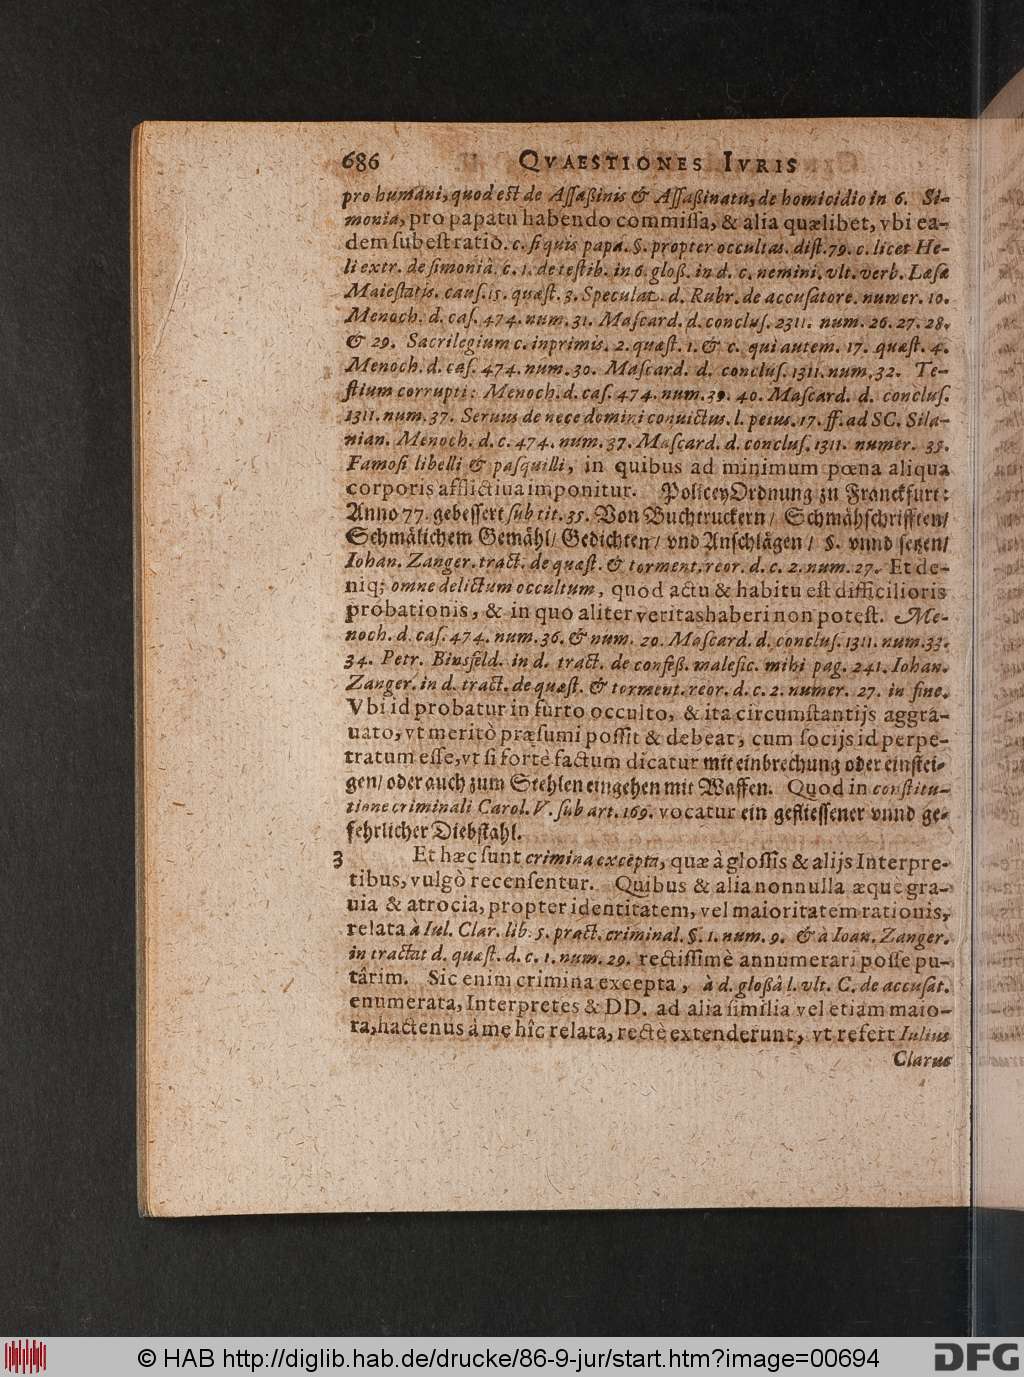 686 QVAESTIONES IVRIS
pro humani, quod est de Aſſaßinis & Aſſaßinatu, de homicidio in 6. Si-
monia, pro papatu habendo commiſſa, & alia quælibet, vbi ea-
dem ſubeſt ratio. c. ſi quis papa. §. propter occultas. diſt. 79. c. licet He-
li extr. de ſimonià. c. 1. de teſtib. in 6. gloß. in d. c. nemini. vlt. verb. Læſæ
Maieſtatis. cauſ. 15. quæſt. 3. Speculat. d. Rubr. de accuſatore. numer. 10.
Menoch. d. caſ. 474. num. 31. Maſcard. d. concluſ. 2311. num. 26. 27. 28.
& 29. Sacrilegium c. inprimis. 2. quæſt. 1. & c. qui autem. 17. quæſt. 4.
Menoch. d. caſ. 474. num. 30. Maſcard. d. concluſ. 1311. num. 32. Te-
ſtium corrupti: Menoch. d. caſ. 474. num. 39. 40. Maſcard. d. concluſ.
1311. num. 37. Seruus de nece domini conuictus. l. peius. 17. ff. ad SC. Sila-
nian. Menoch. d. c. 474. num. 37. Maſcard. d. concluſ. 1311. numer. 35.
Famoſi libelli & paſquilli, in quibus ad minimum pœna aliqua
corporis afflictiua imponitur. Policey Ordnung zu Franckfurt:
Anno 77. gebeſſert ſub tit. 35. Von Buchtruckern/ Schmähſchrifften/
Schmälichem Gemähl/ Gedichten/ vnd Anſchlägen/ §. vnnd ſetzen/
Iohan. Zanger. tract. de quæſt. & torment. reor. d. c. 2. num. 27. Et de-
niq; omne delictum occultum, quod actu & habitu eſt difficilioris
probationis, & in quo aliter veritas haberi non poteſt. Me-
noch. d. caſ. 474. num. 36. & num. 20. Maſcard. d. concluſ. 1311. num. 33.
34. Petr. Binsfeld. in d. tract. de confeß. malefic. mihi pag. 241. Iohan.
Zanger. in d. tract. de quæſt. & torment. reor. d. c. 2. numer. 27. in fine.
Vbi id probatur in furto occulto, & ita circumſtantijs aggra-
uato, vt meritò præſumi poſſit & debeat, cum ſocijs id perpe-
tratum eſſe, vt ſi fortè factum dicatur mit einbrechung oder einſtei-
gen/ oder auch zum Stehlen eingehen mit Waffen. Quod in conſtitu-
tione criminali Carol. V. ſub art. 169. vocatur ein gefliessener vnnd ge-
fehrlicher Diebſtahl.
3 Et hæc ſunt crimina excepta, quæ à gloſſis & alijs Interpre-
tibus, vulgò recenſentur. Quibus & alia nonnulla æque gra-
uia & atrocia, propter identitatem, vel maioritatem rationis,
relata à Iul. Clar. lib. 5. pract. criminal. §. 1. num. 9. & à Ioan. Zanger.
in tractat d. quæſt. d. c. 1. num. 29. rectiſſimè annumerari poſſe pu-
târim. Sic enim crimina excepta, à d. gloßâ l. vlt. C. de accuſat.
enumerata, Interpretes & DD. ad alia ſimilia vel etiam maio-
ra, hactenus à me hîc relata, rectè extenderunt, vt refert Iulius
Clarus
© HAB http://diglib.hab.de/drucke/86-9-jur/start.htm?image=00694
DFG